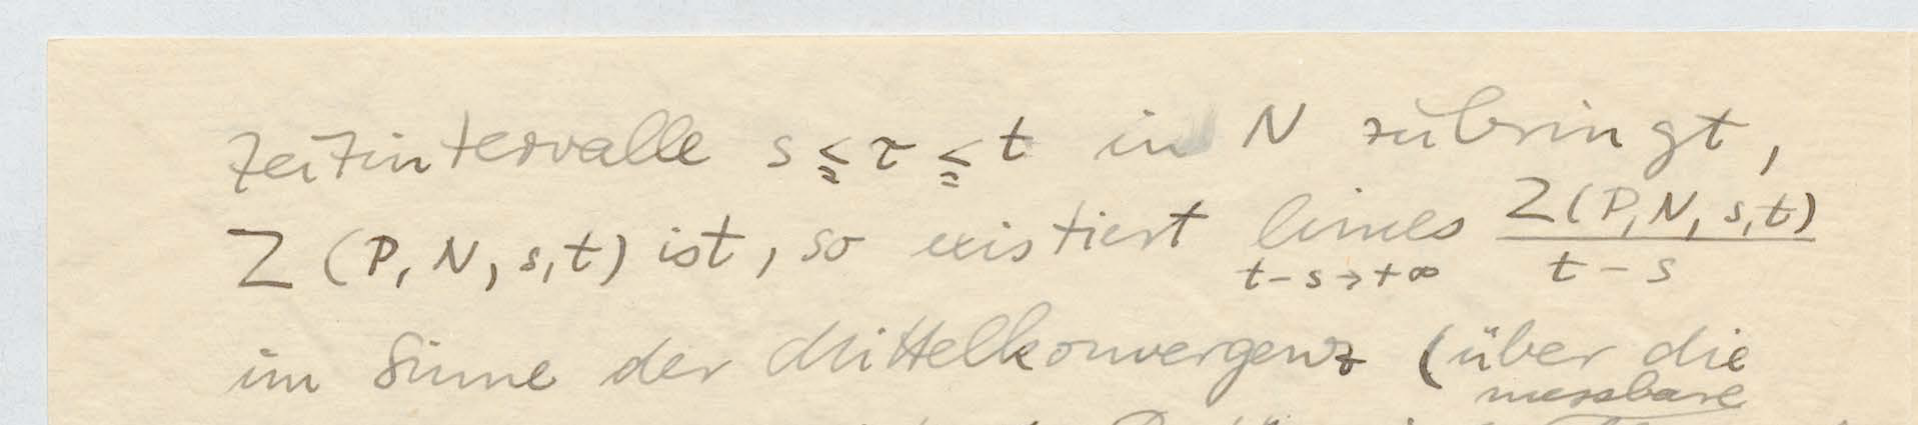 Zeitintervalle s ≦ τ ≦ t in N zubringt,
Z (P, N, s, t) ist, so existiert limes Z(P, N, s, t)
t-s→+∞ t-s
im Sinne der Mittelkonvergenz (über die
messbare